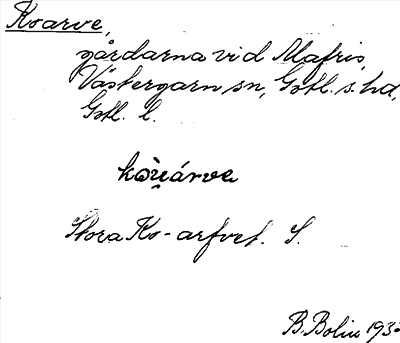 Koarve,
gårdarna vid Mafris,
Västergarn sn, Gotl. s. hd,
Gotl. l.
Stora Ko-arfvet. S.
B. Bolin 193